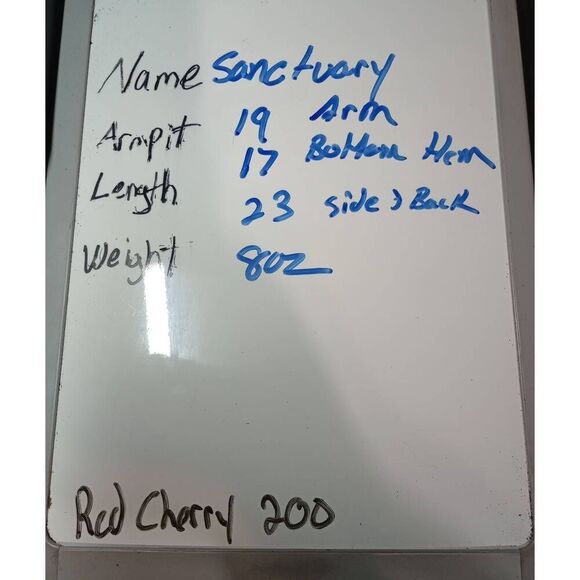 Name Sanctuary
Armpit 19 Arm
17 Bottom Hem
Length 23 side > Back
Weight 8oz
Red Cherry 200